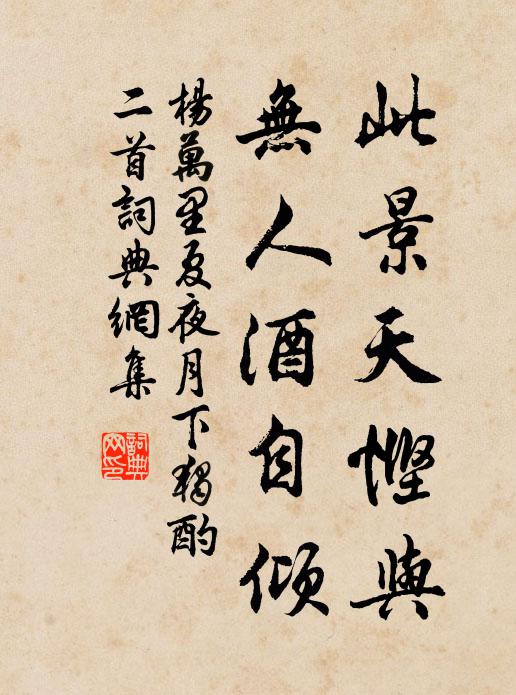 此景天慳與
無人酒自傾
楊萬里夏夜月下獨酌
二首詞典網集
詞典網印